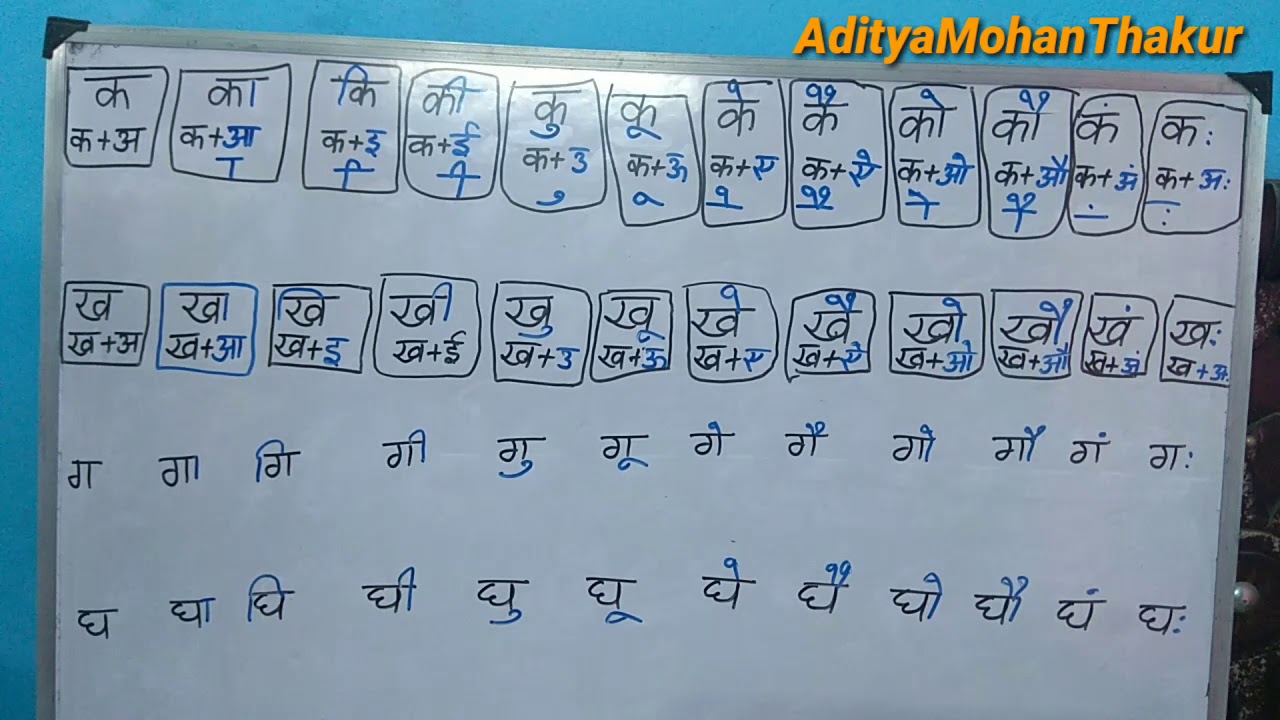 AdityaMohanThakur
क का कि की कु कू के कै को कौ कं कः
क+अ क+आ क+इ क+ई क+उ क+ऊ क+ए क+ऐ क+ओ क+औ क+अं क+अः
ा ि ी ु ू े ै ो ौ ं ः
ख खा खि खी खु खू खे खै खो खौ खं खः
ख+अ ख+आ ख+इ ख+ई ख+उ ख+ऊ ख+ए ख+ऐ ख+ओ ख+औ ख+अं ख+अः
ग गा गि गी गु गू गे गै गो गौ गं गः
घ घा घि घी घु घू घे घै घो घौ घं घः